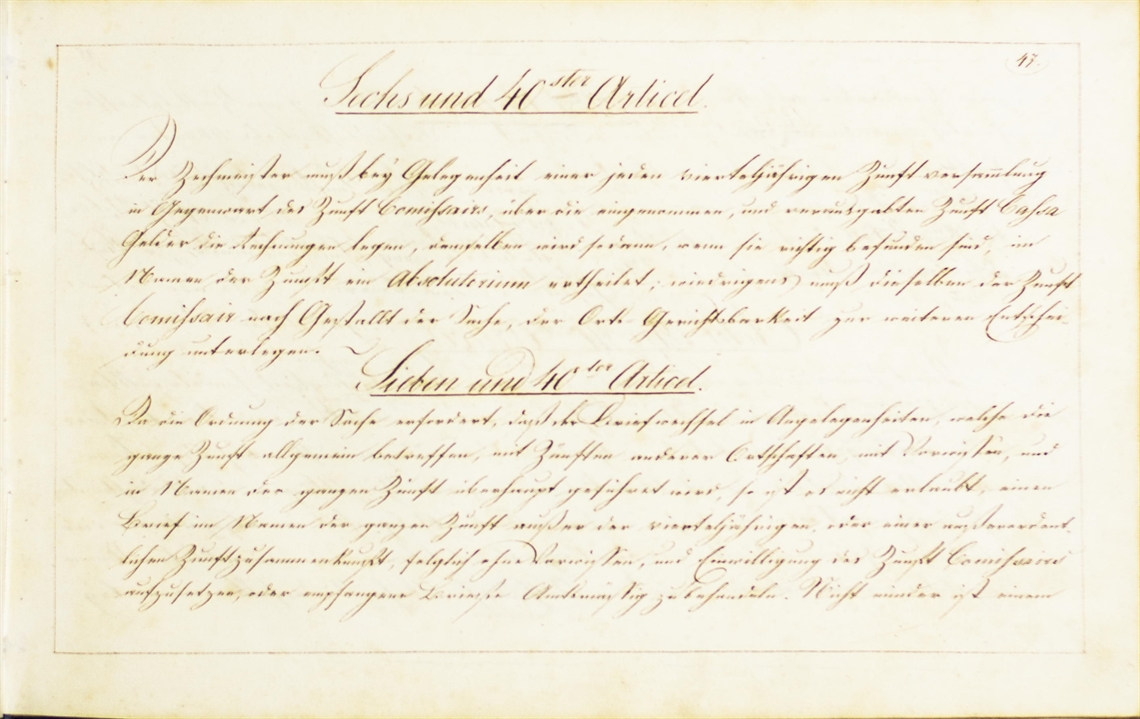 47.
Sechs und 40ster Articel.
Der Zechmeister muß bey Gelegenheit einer jeden vierteljährigen Zunft versammlung
in Gegenwart des Zunft Comissairs, über die eingenommen, und verausgabten Zunft Cassa
Gelder die Rechnungen legen, demselben wird sodann, wenn sie richtig befunden sind, im
Namen der Zunft ein Absolutorium ertheilet; wiedrigens muß dieselben der Zunft
Comissair nach Gestallt der Sache, der Orts Gerichtsbarkeit zur weiteren Entschei-
dung unterlegen.
Sieben und 40ter Articel.
Da die Ordnung der Sache erfordert, daß der Briefwechsel in Angelegenheiten, welche die
ganze Zunft allgemein betreffen, mit Zünften anderer Ortschaften mit Vorwissen, und
in Namen der ganzen Zunft überhaupt geführet wird, so ist es nicht erlaubt, einen
Brief im Namen der ganzen Zunft außer der vierteljährigen, oder einer außerordent-
lichen Zunftzusammenkunft, folglich ohne Vorwissen, und Einwilligung des Zunft Comissairs
aufzusetzen, oder empfangene Briefe Amtsmässig zu behandeln. Nicht minder ist einem